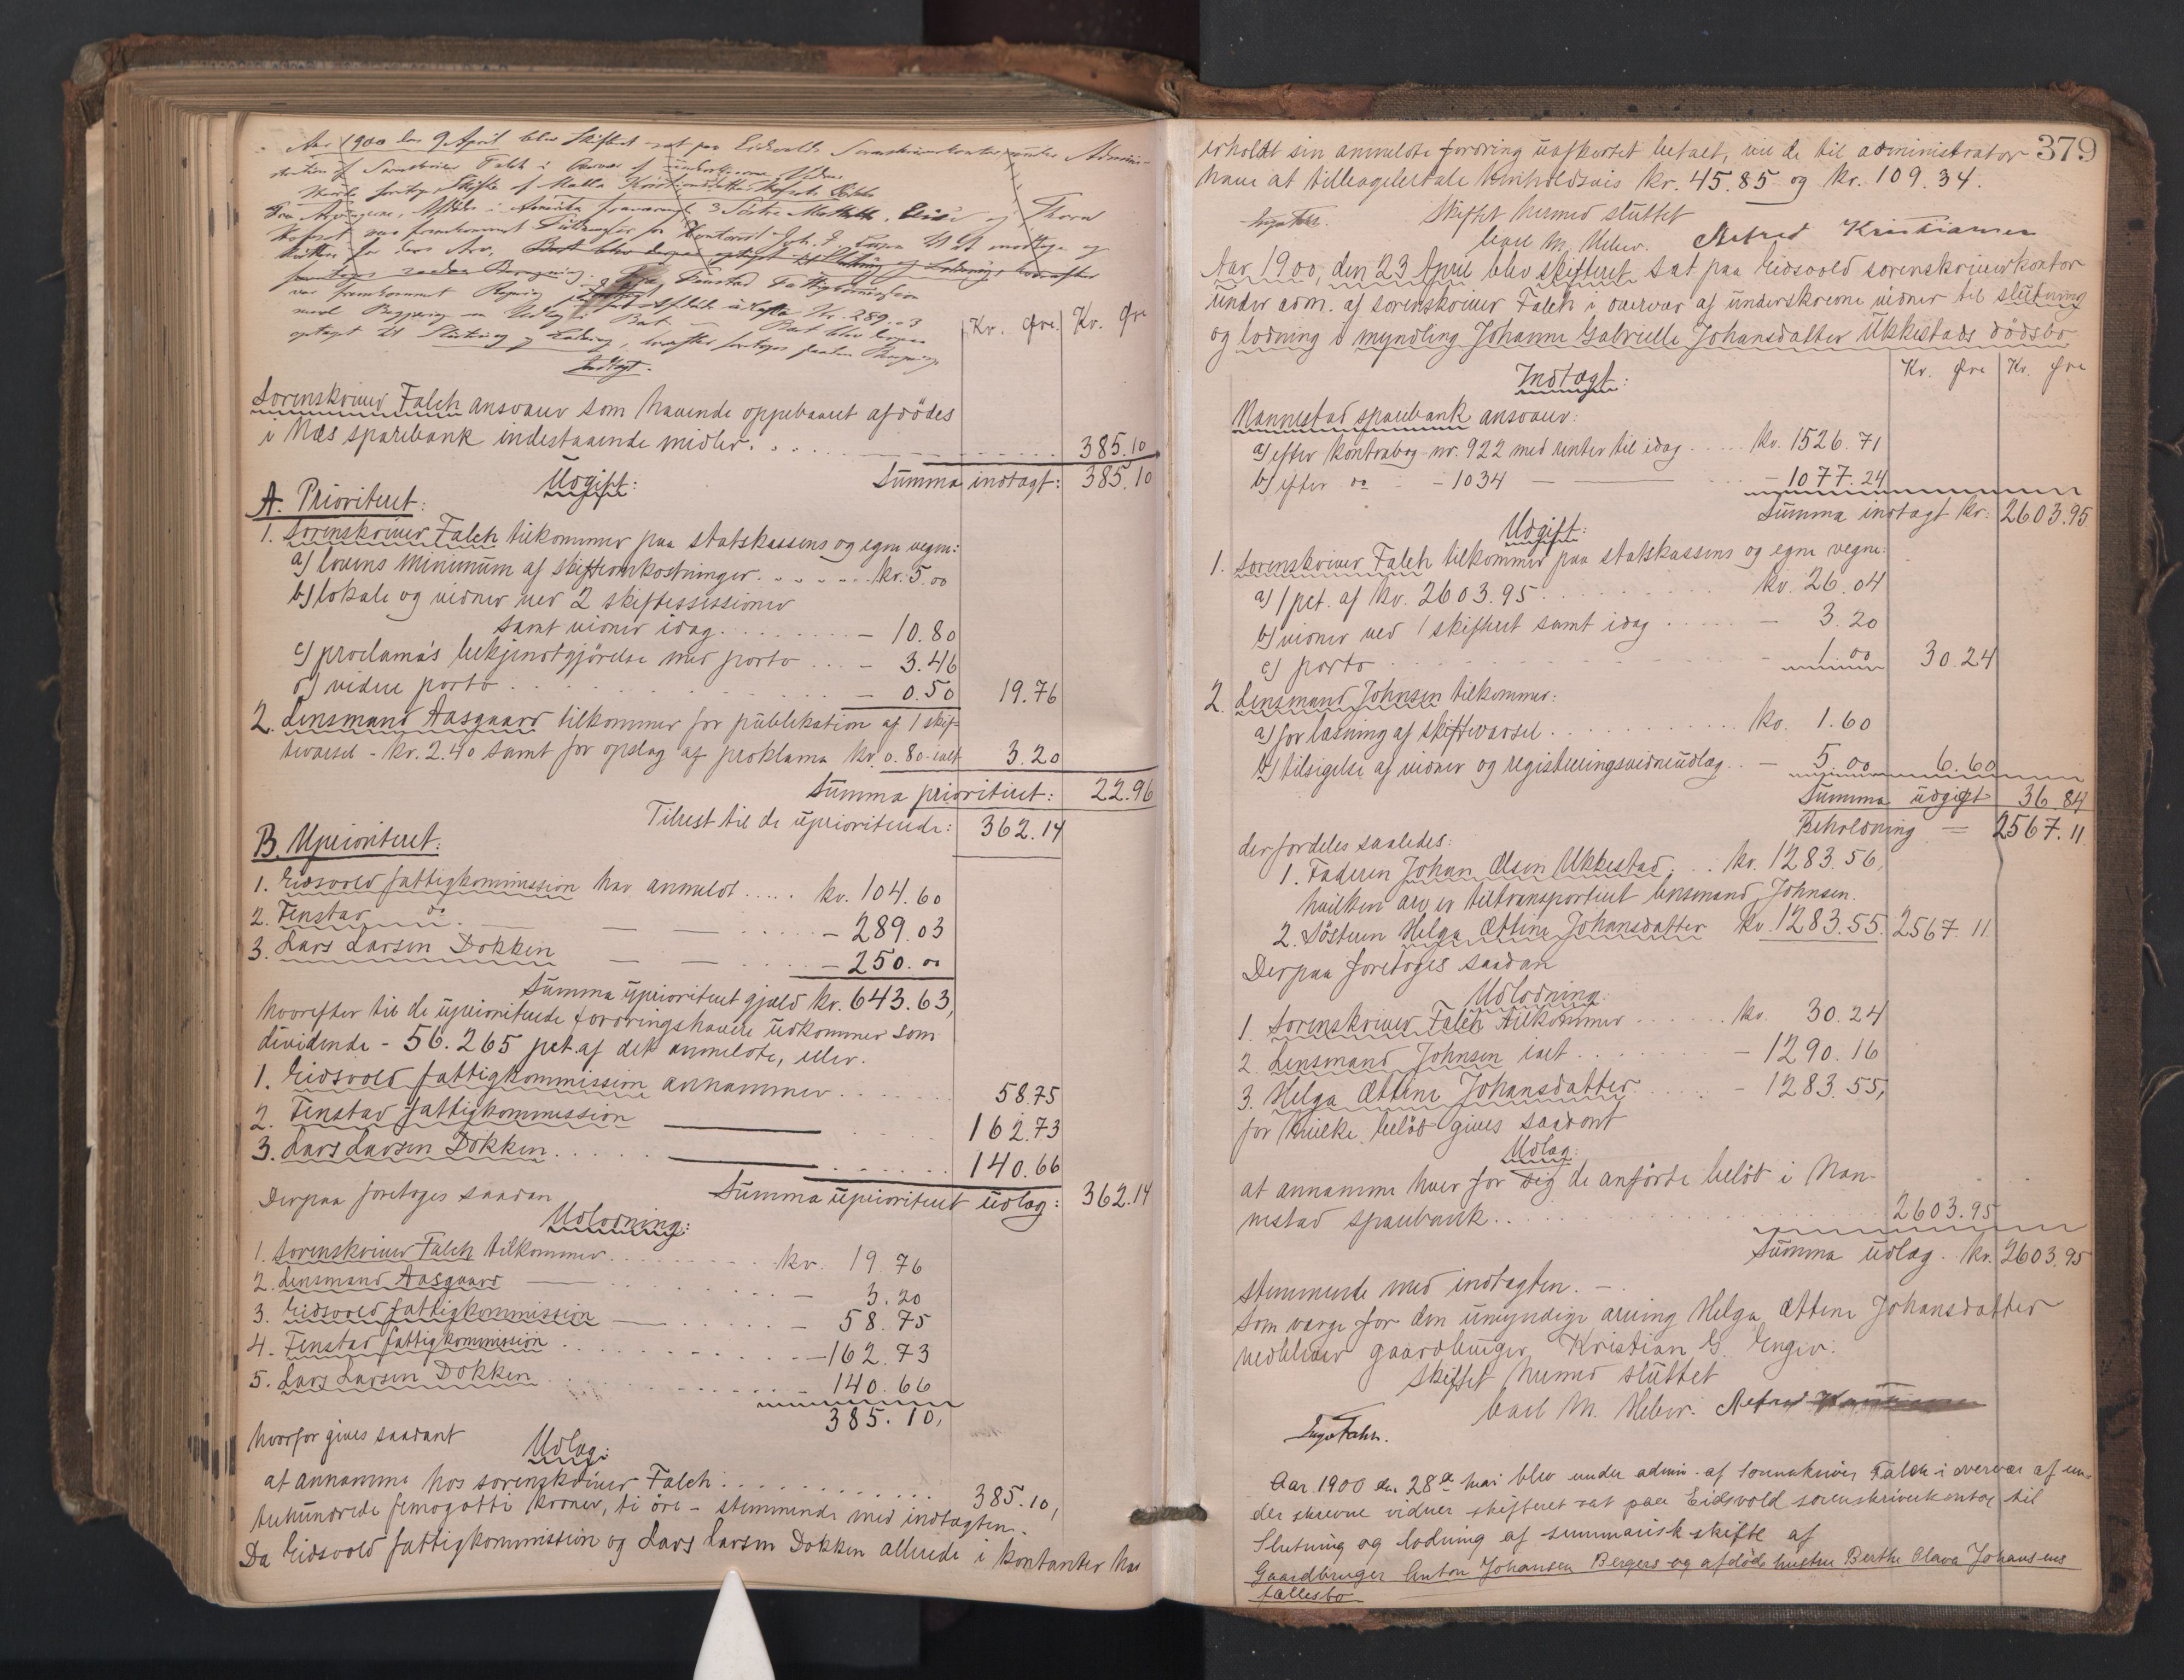 Aar 1900 den 9 April blev Skiftet sat paa Eidsvolds Sorenskriverkontor under Admini-
stration af Sorenskriver Falch i Overvær af underskrevne Vidner
Skifte af Malla Kristiansdatter
3 Søstre Mathilde, og Thora
fremkommet fra Kontorist Joh. at modtage og
Arv. Boet blev derpaa optaget til Slutning og Lodning, hvorefter
foretages saadan Beregning. Fra Fenstad Fattigkommission
var fremkommet Regning Kr. 289.03
med i Boet. — Boet blev derpaa
optaget til Slutning og Lodning, hvorefter foretages saadan Beregning.
Kr. Øre. Kr. Øre
Indtægt.
Sorenskriver Falch ansvarer som havende oppebaaret afdödes
i Næs sparebank indestaaende midler. . . 385.10
Udgift: Summa indtægt: 385.10
A. Prioriteret:
1. Sorenskriver Falch tilkommer paa statskassens og egne vegne:
a) lovens minimum af skifteomkostninger. . . . . . kr. 5.00
b) lokale og vidner ved 2 skiftessessioner
samt vidner idag. . . . . . . . — 10.80
c) proclama's bekjendtgjörelse med porto . . . — 3.46
d) videre porto . . . . — 0.50 19.76
2. Lensmand Aasgaard tilkommer for publikation af 1 skif-
tevarsel - kr. 2.40 samt for opslag af proklama kr. 0.80 - ialt 3.20
Summa prioriteret: 22.96
Tilrest til de uprioriterede: 362.14
B. Uprioriteret:
1. Eidsvold fattigkommission har anmeldt . . . . . kr. 104.60
2. Fenstad do — — — 289.03
3. Lars Larsen Dokken — — — 250.00
Summa uprioriteret gjæld kr. 643.63,
hvorefter til de uprioriterede fordringshavere udkommer som
dividende - 56.265 pct. af det anmeldte, eller.
1. Eidsvold fattigkommission annammer . . . . . . 58.75
2. Fenstad fattigkommission — 162.73
3. Lars Larsen Dokken. . . . . — 140.66
Derpaa foretoges saadan Summa uprioriteret udlæg: 362.14
Udlodning:
1. Sorenskriver Falch tilkommer . . . . . . kr. 19.76
2. Lensmand Aasgaard — — 3.20
3. Eidsvold fattigkommission — — 58.75
4. Fenstad fattigkommission . . . . — 162.73
5. Lars Larsen Dokken . . . . — 140.66
385.10,
hvorfor gives saadant
Udlæg:
at annamme hos sorenskriver Falch: . . . . . . 385.10,
trehundrede femogotti kroner, ti öre - stemmende med indtægten.
Da Eidsvold fattigkommission og Lars Larsen Dokken allerede i kontanter har
379
erholdt sin anmeldte fordring uafkortet betalt, vil de til administrator
have at tilbagebetale henholdsvis kr. 45.85 og kr. 109.34.
Skiftet hermed sluttet
Carl M. Heber. Alfred Kristiansen
Aar 1900, den 23 April blev skifteret sat paa Eidsvold sorenskriverkontor
under adm. af sorenskriver Falch i overvær af underskrevne vidner til slutning
og lodning i myndling Johanne Gabrielle Johansdatter Ukkestads dödsbo
Kr. Øre Kr. Øre
Indtægt:
Nannestad sparebank ansvarer:
a) efter kontrabog nr. 922 med renter til idag . . . . . kr. 1526.71
b) efter do - 1034 — — 1077.24
Summa indtægt kr. 2603.95
Udgift:
1. Sorenskriver Falch tilkommer paa statskassens og egne vegne:
a) 1 pct. af kr. 2603.95 . . . . . . . kr. 26.04
b) vidner ved 1 skifteret samt idag . . . . . — 3.20
c) porto . . . . . - 1.00 30.24
2. Lensmand Johnsen tilkommer:
a) for læsning af skiftevarsel . . . . . . kr. 1.60
b) tilsigelse af vidner og registreringsvidneudlæg . . — 5.00 6.60
Summa udgift 36.84
Beholdning = 2567.11
der fordeles saaledes:
1. Faderen Johan Olsen Ukkestad . . . kr. 1283.56,
hvilken arv er tiltransporteret lensmand Johnsen.
2. Söstren Helga Ottine Johansdatter kr. 1283.55. 2567.11.
Derpaa foretoges saadan
Udlodning:
1. Sorenskriver Falch tilkommer . . . . . . kr. 30.24
2. Lensmand Johnsen ialt . . . . . . — 1290.16
3. Helga Ottine Johansdatter . . . . . - 1283.55,
for hvilke belöb gives saadant
Udlæg:
at annamme hver for sig de anförte belöb i Nan-
nestad sparebank . . . . . . 2603.95
Summa udlæg. kr. 2603.95
stemmende med indtægten. —
Som værge for den umyndige arving Helga Ottine Johansdatter
vedbliver gaardbruger Kristian G. Enger.
Skiftet hermed sluttet
Carl M. Heber. Alfred Kristiansen
Aar 1900 den 28de Mai blev under admin. af sorenskriver Falch i overvær af un-
der skrevne vidner skifteret sat paa Eidsvold sorenskriverkontor til
Slutning og lodning af summarisk skifte af
Gaardbruger Anton Johansen Bergers og afdöde hustru Berthe Olava Johansens
fællesbo